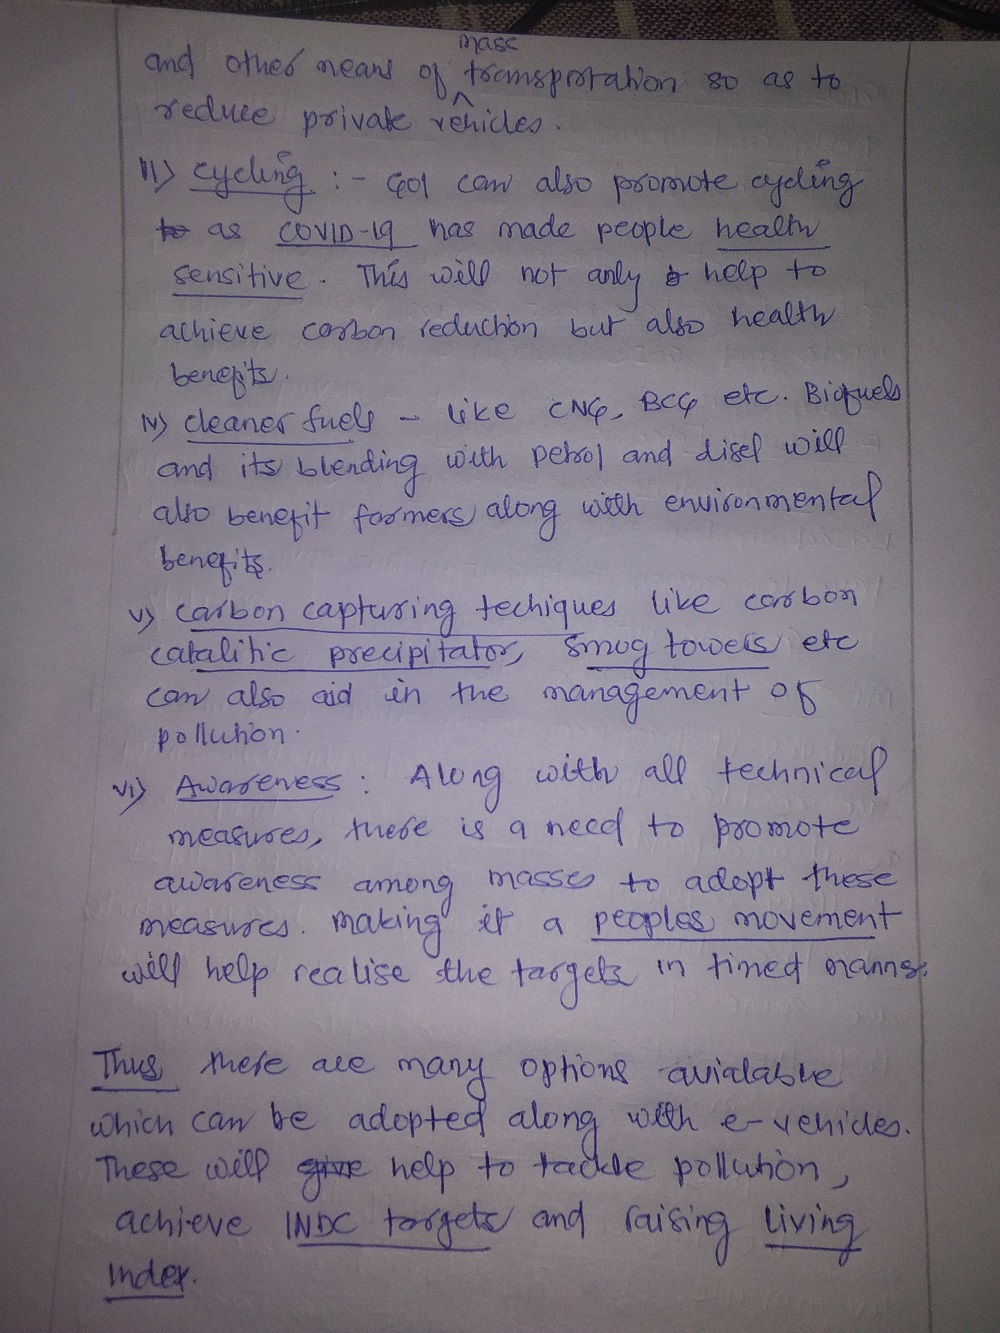 mass
and other means of ^ transportation so as to
reduce private vehicles.
III) cycling :- GOI can also promote cycling
to as COVID-19 has made people health
sensitive. This will not only help to
achieve carbon reduction but also health
benefits.
IV) cleaner fuels - like CNG, BCG etc. Biofuels
and its blending with petrol and disel will
also benefit farmers along with environmental
benefits.
V) Carbon capturing techiques like carbon
catalitic precipitator, smog towers etc
can also aid in the management of
pollution.
VI) Awareness : Along with all technical
measures, there is a need to promote
awareness among masses to adopt these
measures. Making it a peoples movement
will help realise the targets in timed manner.
Thus there are many options avialable
which can be adopted along with e-vehicles.
These will give help to tackle pollution,
achieve INDC targets and raising living
index.